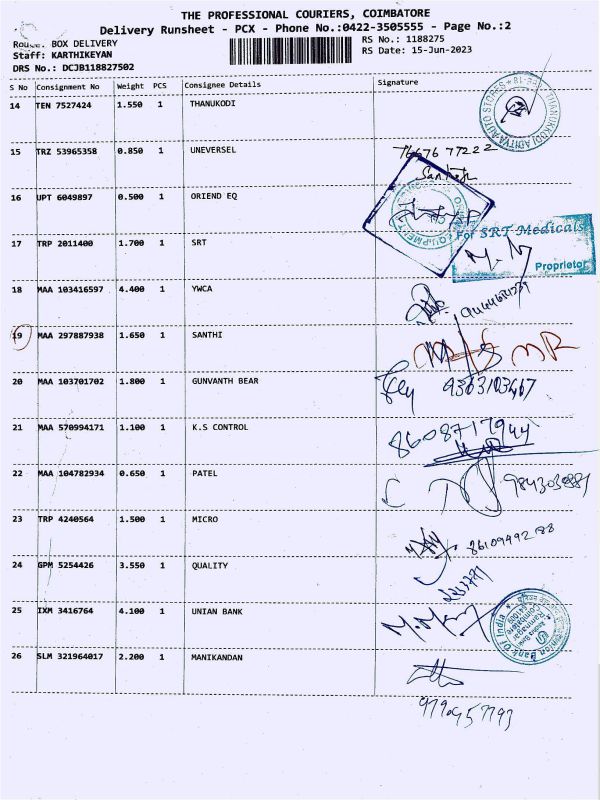 THE PROFESSIONAL COURIERS, COIMBATORE
Delivery Runsheet - PCX - Phone No.:0422-3505555 - Page No.:2
Route: BOX DELIVERY
RS No.: 1188275
Staff: KARTHIKEYAN
RS Date: 15-Jun-2023
DRS No.: DCJB118827502
S No Consignment No Weight PCS Consignee Details Signature
14 TEN 7527424 1.550 1 THANUKODI
THANUKODI ADITYA AUTO STORES
15 TRZ 53965358 0.850 1 UNEVERSEL
76676 77222
Santhosh
16 UPT 6049897 0.500 1 ORIEND EQ
17 TRP 2011400 1.700 1 SRT
For SRT Medicals
Proprietor
18 MAA 103416597 4.400 1 YWCA
19 MAA 297887938 1.650 1 SANTHI
20 MAA 103701702 1.800 1 GUNVANTH BEAR
9363103467
21 MAA 570994171 1.100 1 K.S CONTROL
8608717944
22 MAA 104782934 0.650 1 PATEL
23 TRP 4240564 1.500 1 MICRO
24 GPM 5254426 3.550 1 QUALITY
25 IXM 3416764 4.100 1 UNIAN BANK
Union Bank Of India
26 SLM 321964017 2.200 1 MANIKANDAN